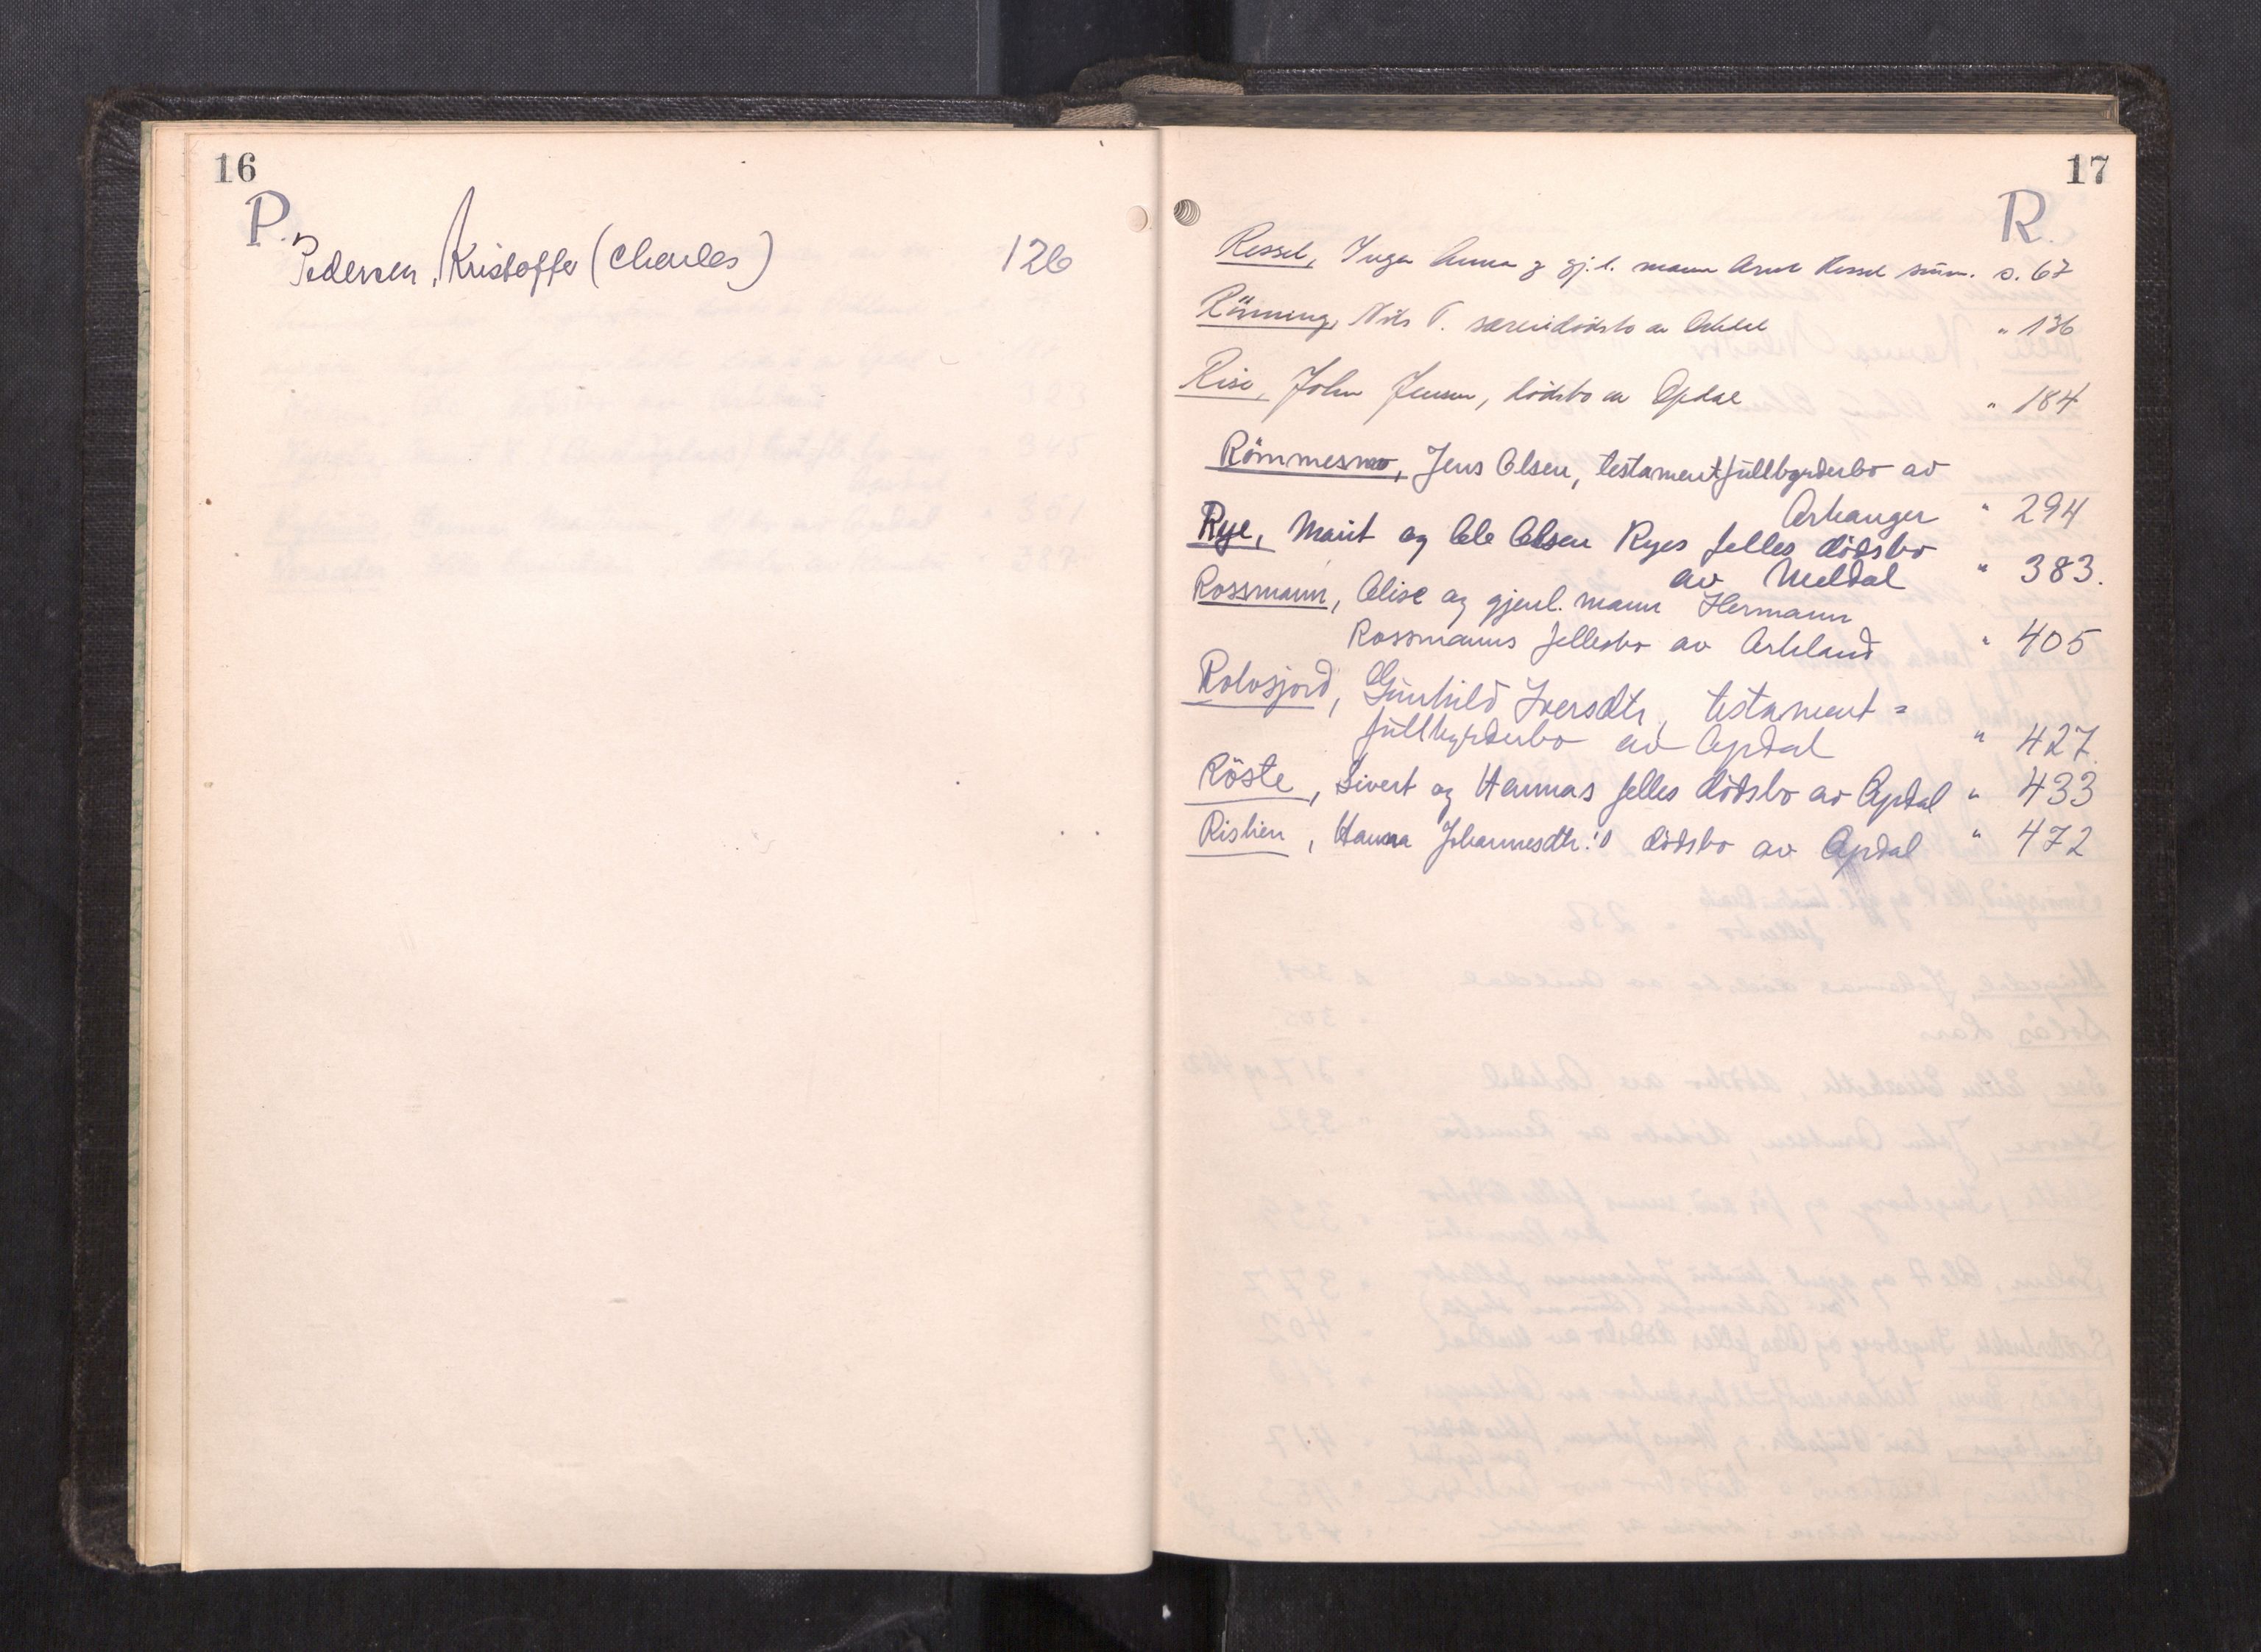 16
P.
Pedersen, Kristoffer (Charles) 126
17
R.
Ressel, Inga Anna g gj.l. mann Arne Ressel s. 67
Rönning, Nils T. særeiedödsbo av " 136
Rise, John Jensen, dödsbo av Opdal " 184
Römmesmo, Jens Olsen, testamentfullbyrderbo av
Orkanger " 294
Rye, Marit og Ole Olsen Ryes felles dödsbo
av Meldal " 383.
Rossmann, Elise og gjenl. mann Hermann
Rossmanns fellesbo av Orkland " 405
Rolvsjord, Gunhild Iversdtr, testament=
fullbyrderbo av Opdal " 427
Röste, Sivert og Hannas felles dödsbo av Opdal " 433
Rislien, Hanna Johannesdtr.'s dödsbo av Opdal " 472